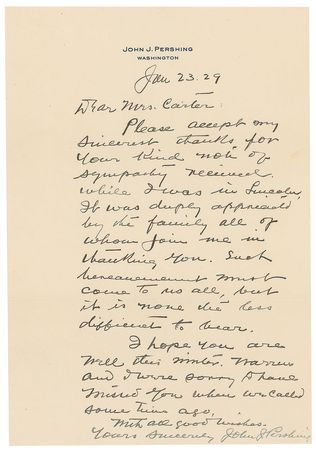 JOHN J. PERSHING
WASHINGTON
Jan 23.29
Dear Mrs. Carter:
Please accept my
sincerest thanks for
your kind note of
sympathy received
while I was in Lincoln,
It was deeply appreciated
by the family all of
whom join me in
thanking you. Such
bereavement must
come to us all, but
it is none the less
difficult to bear.
I hope you are
well this winter. Warren
and I were sorry to have
missed you when we called
some time ago,
With all good wishes.
Yours sincerely John J. Pershing